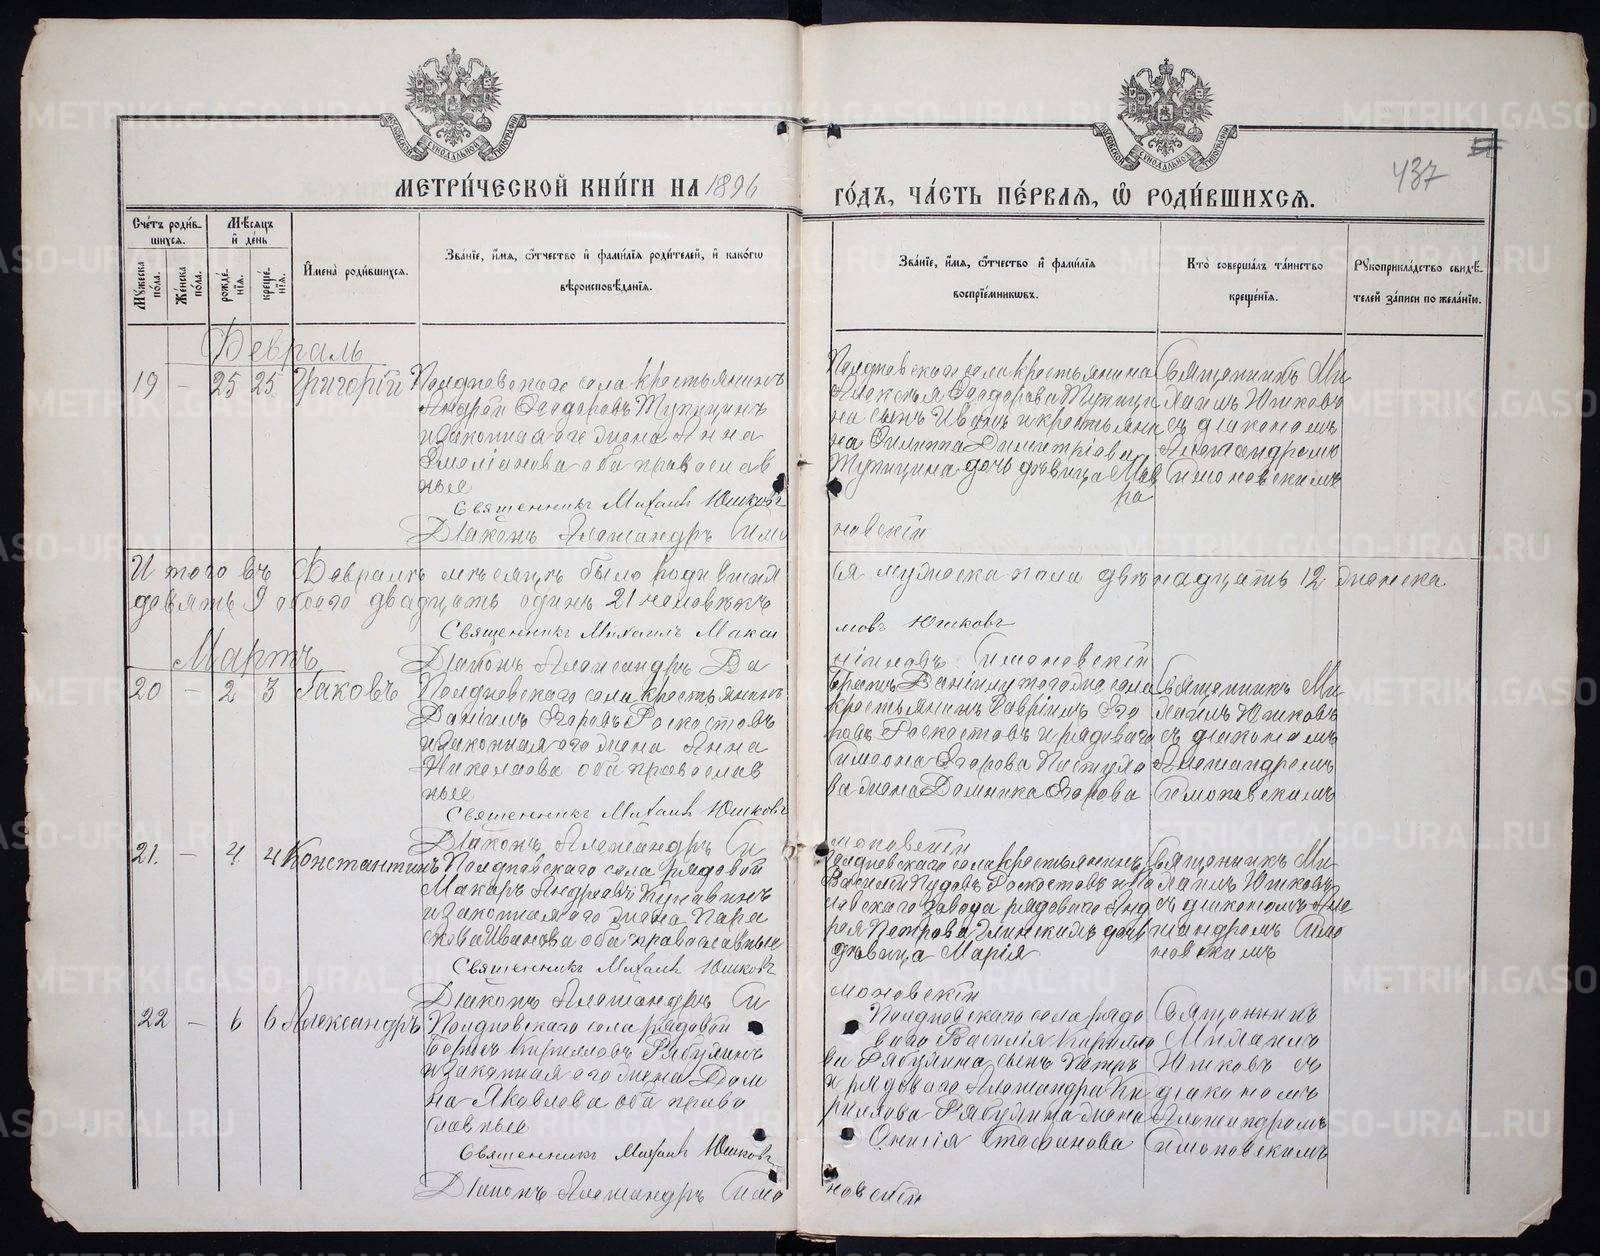 МЕТРИ́ЧЕСКОЙ КНИ́ГИ НА 1896
ГО́ДЪ, ЧА́СТЬ ПЕ́РВАЯ, Ѡ҆ РОДИ́ВШИХСЯ.
437
Сче́тъ роди́в-
шихся.
Мѣ́сяцъ
и҆ де́нь
И҆мена̀ роди́вшихся.
Зва́нїе, и҆́мя, ѻ҆́тчество и҆ фами́лїя роди́телей, и҆ како́гѡ
вѣроисповѣ́данїя.
Мꙋ́жеска по́ла.
Же́нска по́ла.
рожде́нїя.
креще́нїя.
Зва́нїе, и҆́мя, ѻ҆́тчество и҆ фами́лїя
воспрїе́мникѡвъ.
Кто̀ соверша́лъ та́инство
креще́нїя.
Рꙋкоприкла́дство свидѣ́-
телей за́писи по жела́нїю.
Февраль
19 — 25 25 Григорій
Полдневскаго села крестьянинъ
Андрей Ѳеодоровъ Тупицинъ
и законная его жена Анна
Емеліанова оба православ
ные
Священникъ Михаилъ Юшковъ
Діаконъ Александръ Симо
новскій
Полдневскаго села крестьянина
Алексѣя Ѳеодорова Тупици
на сынъ Иванъ и крестьяни
на Филиппа Димитріева
Тупицина дочь дѣвица Мав
ра
Священникъ Ми
хаилъ Юшковъ
съ діакономъ
Александромъ
Симоновскимъ
Итого въ Февралѣ мѣсяцѣ было родивших
ся мужеска пола двѣнадцать 12 женска
девять 9 обоего двадцать одинъ 21 человѣкъ
Священникъ Михаилъ Макси
мовъ Юшковъ
Діаконъ Александръ Да
ніиловъ Симоновскій
Мартъ
20 — 2 3 Іаковъ
Полдневскаго села крестьянинъ
Даніилъ Егоровъ Роскостовъ
и законная его жена Анна
Николаева оба православ
ные
Священникъ Михаилъ Юшковъ
Діаконъ Александръ Си
моновскій
Братъ Даніилу того же села
крестьянинъ Гавріилъ Его
ровъ Роскостовъ и рядоваго
Симеона Егорова
ва жена Домника Егорова
Священникъ Ми
хаилъ Юшковъ
съ діакономъ
Александромъ
Симоновскимъ
21. — 4 4 Константинъ
Полдневскаго села рядовой
Макаръ Андреевъ
и законная его жена Пара
скева Иванова оба православные
Священникъ Михаилъ Юшковъ
Діаконъ Александръ Си
моновскій
Полдневскаго села крестьянинъ
Василій Роскостовъ и По
левскаго завода рядоваго Анд
рея Петрова
дѣвица Марія
Священникъ Ми
хаилъ Юшковъ
съ діакономъ Але
ксандромъ Симо
новскимъ
22 — 6 6 Александръ
Полдневскаго села рядовой
Борисъ Кирилловъ Рябухинъ
и законная его жена Дом
на Яковлева оба право
славные
Священникъ Михаилъ Юшковъ
Діаконъ Александръ Симо
новскій
Полдневскаго села рядо
ваго Василія Кирилло
ва Рябухина сынъ Петръ
и рядоваго Александра Ки
риллова Рябухина жена
Стефанова
Священникъ
Михаилъ
Юшковъ съ
діакономъ
Александромъ
Симоновскимъ
METRIKI.GASO-URAL.RU